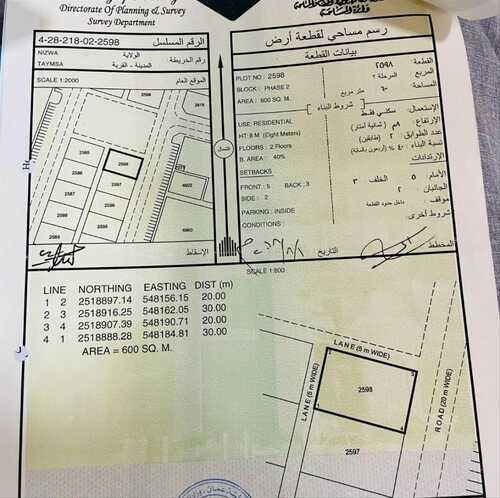 Directorate Of Planning & Survey
Survey Department
4-28-218-02-2598 الرقم المسلسل
NIZWA الولاية
TAYMSA المدينة - القرية رقم الخريطة
SCALE 1:2000 الموقع العام
2598
2598
2595
2597
6203
2593
الإسقاط
شمال
رسم مساحي لقطعة أرض
بيانات القطعة
PLOT NO : 2598 القطعة: ٢٥٩٨
BLOCK : PHASE 2 المربع المرحلة ٢
AREA : 600 SQ. M. المساحة متر مربع
شروط البناء
USE: RESIDENTIAL الإستعمال: سكني فقط
HT:8 M (Eight Meters) الإرتفاع: ٨م (ثمانية أمتار)
FLOORS : 2 Floors عدد الطوابق: ٢ (طابقين)
B. AREA 40% نسبة البناء: ٤٠٪ (أربعون بالمائة)
SETBACKS الإرتدادات
FRONT : 5 BACK : 3 الأمام ٥ الخلف ٣
SIDE : 2 الجانبان ٢
PARKING : INSIDE موقف: داخل حدود القطعة
CONDITIONS : شروط أخرى:
التاريخ
المخطط
SCALE 1:800
LINE NORTHING EASTING DIST (m)
1 2 2518897.14 548156.15 20.00
2 3 2518916.25 548162.05 30.00
3 4 2518907.39 548190.71 20.00
4 1 2518888.28 548184.81 30.00
AREA = 600 SQ. M.
LANE (6 m WIDE)
LANE (6 m WIDE)
ROAD (20 m WIDE)
2598
2597